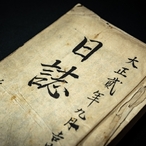 大正貳年九月
日誌